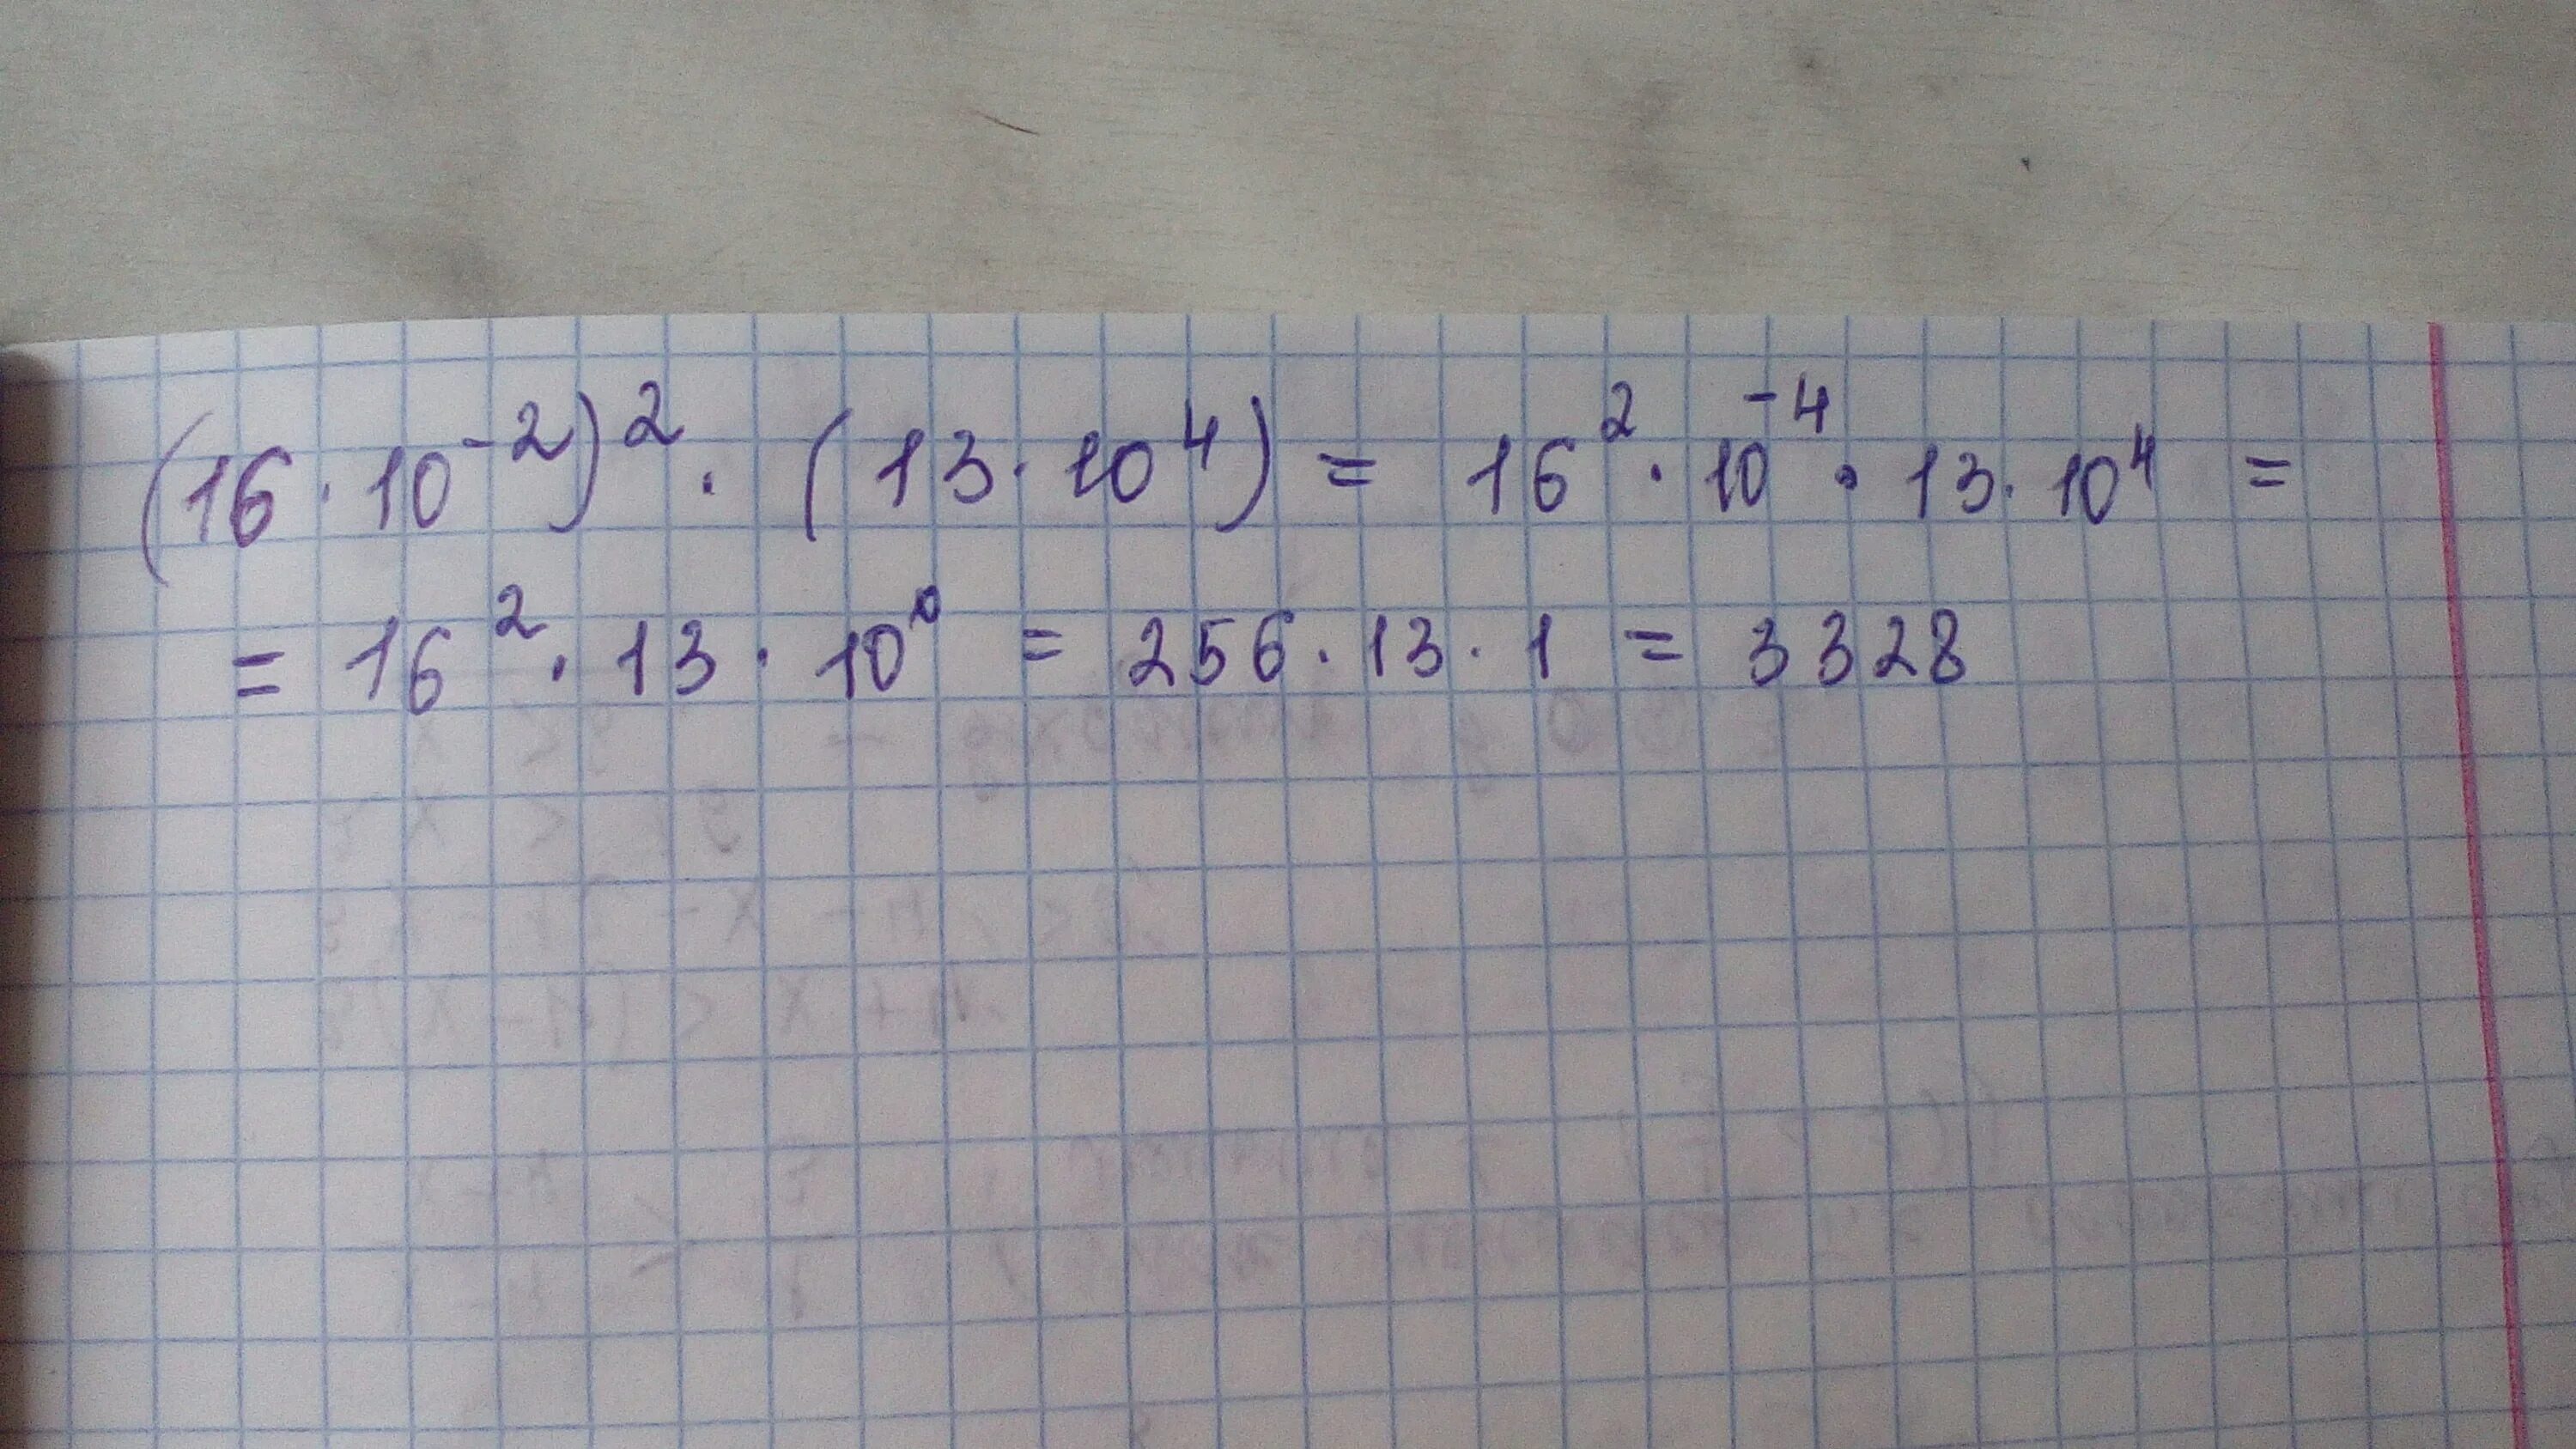 (16 · 10⁻²)² · (13 · 10⁴) = 16² · 10⁻⁴ · 13 · 10⁴ =
= 16² · 13 · 10⁰ = 256 · 13 · 1 = 3328